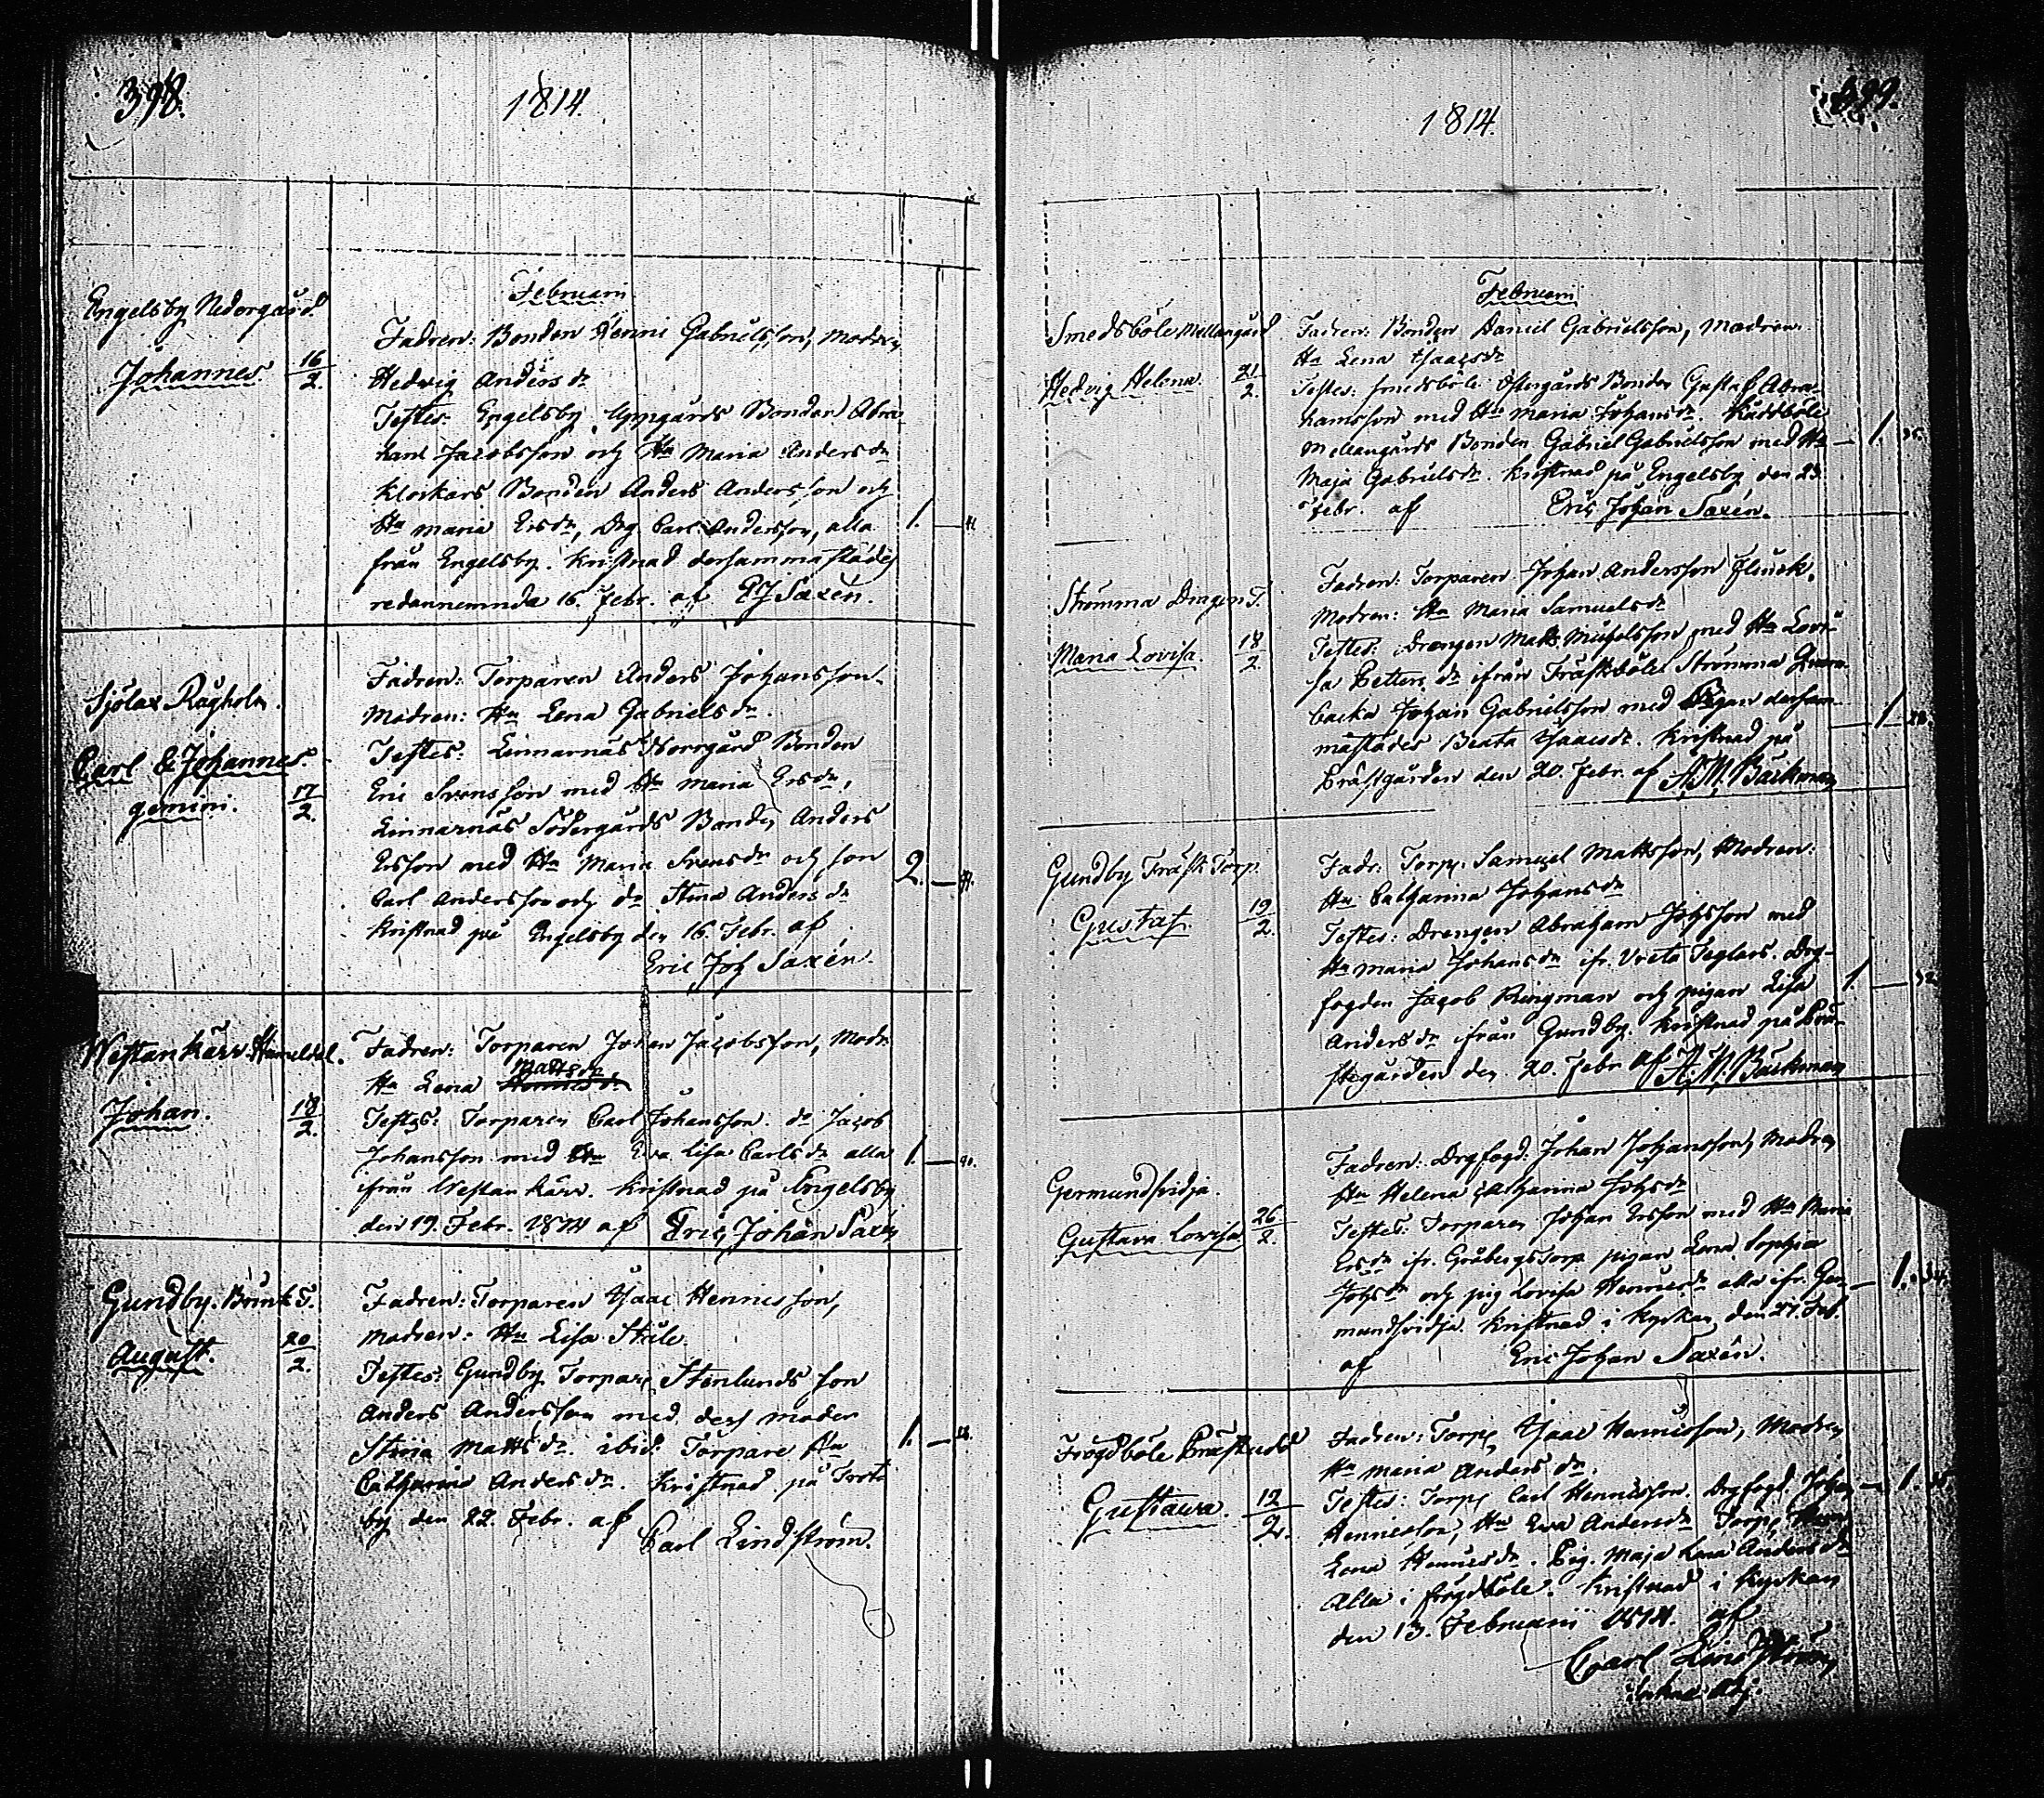 398.
1814.
Februari
Engelsby Nedergård
Johannes.
16/2.
Fadren: Bonden Henric Gabrielsson, Modren
Hedvig Anders dr
Testes: Engelsby Uppgårds Bonden Abra-
ham Jacobsson och Hu Maria Anders dr
Klockars Bonden Anders Andersson och
Hu Maria Ersdr, Drg Carl Andersson, alla
från Engelsby. Kristnad dersammastädes
redannemnda 16. Febr. af EJ Saxén.
1. — 41.
Sjölax Rågholm.
Carl & Johannes.
gemini.
17/2.
Fadren: Torparen Anders Johansson
Modren: Hu Lena Gabriels dr.
Testes: Linnarnäs Norrgård Bonden
Eric Svensson med Hu Maria Ersdr,
Linnarnäs Södergårds Bonden Anders
Ersson med Hu Maria Svensdr och son
Carl Andersson och dr Stina Anders dr
Kristnad på Engelsby den 16. Febr. af
Eric Joh Saxén.
2. —
Westankärr
Johan.
18/2.
Fadren: Torparen Johan Jacobsson, Modr.
Matts dr
Hu Lena
Testes: Torparen Carl Johansson. do Jacob
Johansson med Hu Eva Lisa Carls dr alla
ifrån Westankärr. Kristnad på Engelsby
den 19. Febr. 1814 af Eric Johan Saxén
1. — 40.
Gundby. Brink T.
August.
20/2.
Fadren: Torparen Isaac Hennisson,
Modren: Hu Lisa Ståle.
Testes: Gundby Torpare Stenlunds son
Anders Andersson med dess moder
Stina Matts dr. ibid: Torpare Hu
Catharina Anders dr. Kristnad på
by den 22. Febr. af
Carl Lindström.
1. —
399.
1814.
Februari
Smedsböle Mellangård
Hedvig Helena.
21/2.
Fadren: Bonden Daniel Gabrielsson, Modren:
Hu Lena Isaacsdr
Testes: Smedsböle Östergårds Bonden Gustaf Abra-
hamsson med Hu Maria Johansdr. Räddböle
Mellangårds Bonden Gabriel Gabrielsson med Hu
Maja Gabriels dr. Kristnad på Engelsby den 23.
Febr. af Eric Johan Saxén.
— 1. 35.
Strömma Dragon T.
Maria Lovisa.
18/2.
Fadren: Torparen Johan Andersson Flinck.
Modren: Hu Maria Samuelsdr
Testes: Drengen Matts Michelsson med Hu Lovi-
sa Petters dr ifrån Träskböle Strömma Qvarn-
backa Johan Gabrielsson med Pigan dersam-
mastädes Beata Isaacsdr. Kristnad på
Prästgården den 20. Febr. af A. M. Bäckman
— 1.
Gundby Träsk Torp.
Gustaf.
19/2.
Fadr: Torp. Samuel Mattsson, Modren:
Hu Catharina Johansdr
Testes: Drengen Abraham Johsson med
Hu Maria Johansdr ifr. Vreta Teglars. Drg-
fogden Jacob Ringman och pigan Lisa
Anders dr ifrån Gundby. Kristnad på Prä-
stegården den 20. Febr. af A. M. Bäckman
1. — 32
Germundsvidja.
Gustava Lovisa
26/2.
Fadren: Drgfogd: Johan Johansson, Modren
Hu Helena Catharina Johsdr
Testes: Torparen Johan Ersson med Hu Maria
Ersdr ifr. Gråbergs Torp pigan Lena Sophia
Johsdr och pig Lovisa Hennes dr alla ifr. Ger-
mundsvidja. Kristnad i Kyrkan den 27. Feb.
af Eric Johan Saxén.
— 1. 34.
Frögdböle
Gustawa.
12/2.
Fadren: Torp. Isaac Hennisson, Modren
Hu Maria Anders dr.
Testes: Torp. Carl Hennisson. Drgfogd. Johan
Hennisson, Hu Eva Andersdr Torp.
Lena Hennes dr. Pig. Maja Lena Anders dr
Alla i Frögdböle. Kristnad i Kyrkan
den 13. Februarii 1814. af
Carl Lindström
Adj.
— 1.